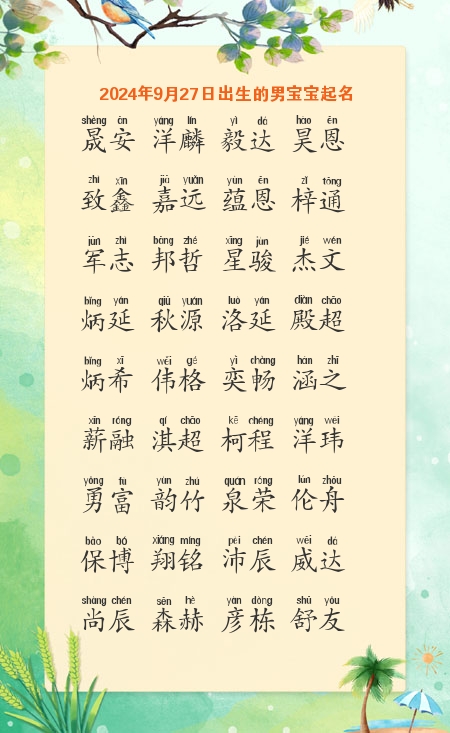 2024年9月27日出生的男宝宝起名
shèng ān yáng lín yì dá hào ēn
晟安 洋麟 毅达 昊恩
zhì xīn jiā yuǎn yùn ēn zǐ tōng
致鑫 嘉远 蕴恩 梓通
jūn zhì bāng zhé xīng jùn jié wén
军志 邦哲 星骏 杰文
bǐng yán qiū yuán luò yán diàn chāo
炳延 秋源 洛延 殿超
bǐng xī wěi gé yì chàng hán zhī
炳希 伟格 奕畅 涵之
xīn róng qí chāo kē chéng yáng wěi
薪融 淇超 柯程 洋玮
yǒng fù yùn zhú quán róng lún zhōu
勇富 韵竹 泉荣 伦舟
bǎo bó xiáng míng pèi chén wēi dá
保博 翔铭 沛辰 威达
shàng chén sēn hè yàn dòng shū yǒu
尚辰 森赫 彦栋 舒友